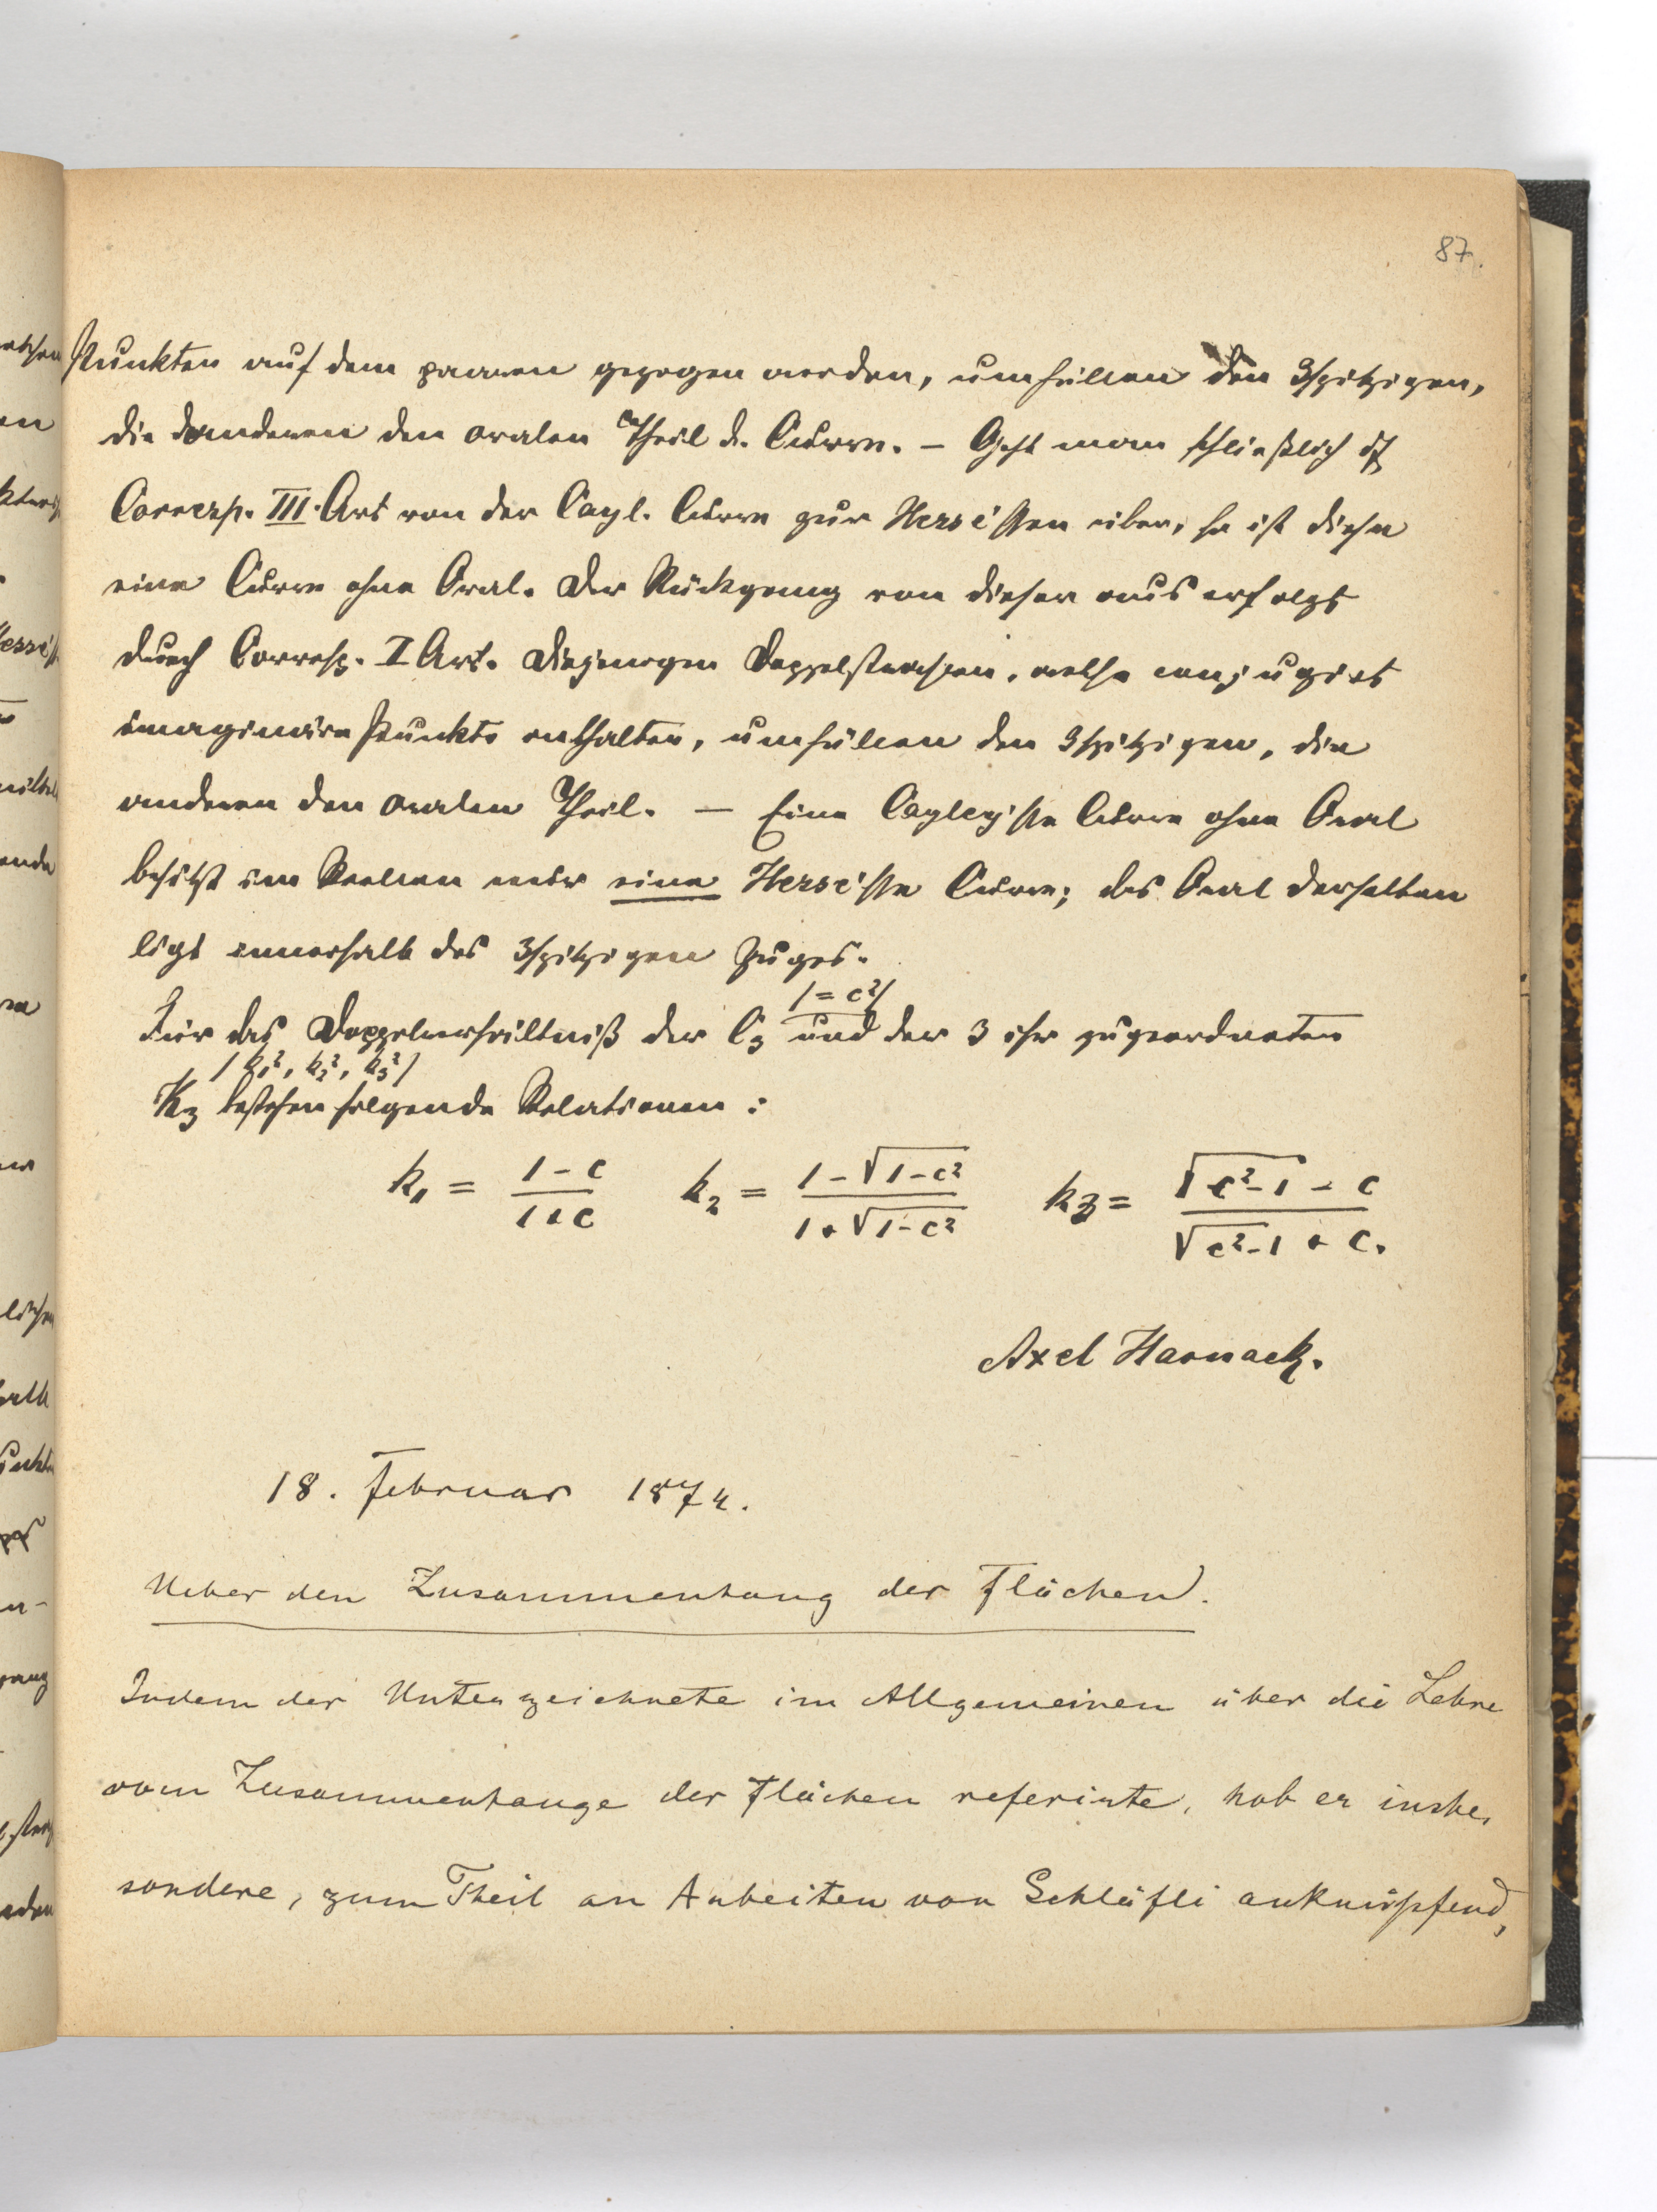 87.
Punkten auf dem paaren gezogen werden, umhüllen den 3spitzigen,
die anderen den ovalen Theil d. Curve. – Geht man schließlich d.
Corresp. III. Art von der Cayl. Curve zur Hesse'schen über, so ist diese
eine Curve ohne Oval. Der Rückgang von dieser aus erfolgt
durch Corresp. I Art. Diejenigen Doppelstrahlen, welche conjugirt
imaginäre Punkte enthalten, umhüllen den 3spitzigen, die
anderen den ovalen Theil. – Eine Cayley'sche Curve ohne Oval
besitzt im Reellen nur eine Hesse'sche Curve; das Oval derselben
ligt innerhalb des 3spitzigen Zuges.
Für das Doppelverhältniß der C₃ /= c²/ und der 3 ihr zugeordneten
/k₁², k₂², k₃²/
K₃ bestehen folgende Relationen:
k₁ = (1 - c)/(1 + c)   k₂ = (1 - √(1 - c²))/(1 + √(1 - c²))   k₃ = (√(c² - 1) - c)/(√(c² - 1) + c).
Axel Harnack.
18. Februar 1874.
Ueber den Zusammenhang der Flächen.
Indem der Unterzeichnete im Allgemeinen über die Lehre
vom Zusammenhange der Flächen referirte, hob er insbe-
sondere, zum Theil an Arbeiten von Schläfli anknüpfend,